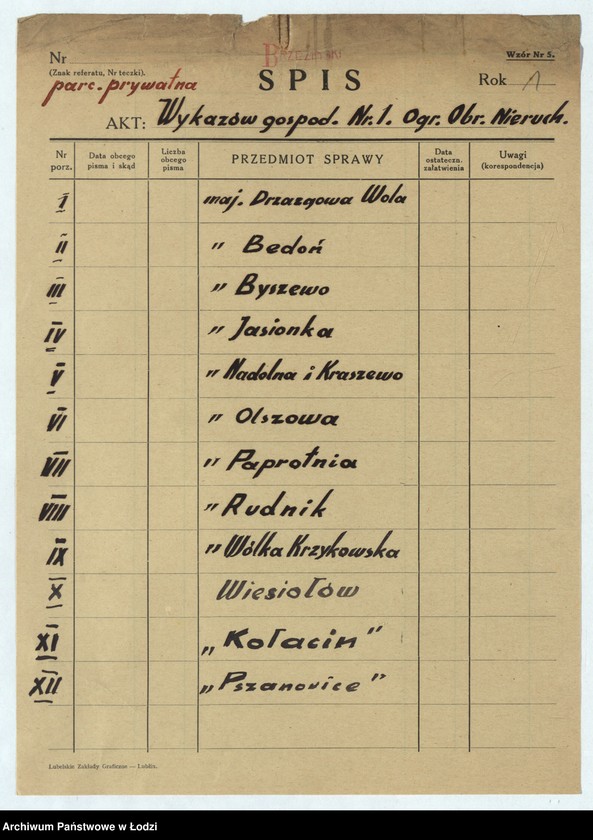 BRZEZIŃSKI
Nr
Wzór Nr 5.
(Znak referatu, Nr teczki).
parc. prywatna
SPIS
Rok 1
AKT: Wykazów gospod. Nr. 1. Ogr. Obr. Nieruch.
Nr porz. Data obcego pisma i skąd Liczba obcego pisma PRZEDMIOT SPRAWY Data ostateczn. załatwienia Uwagi (korespondencja)
I maj. Drzazgowa Wola
II " Bedoń
III " Byszewo
IV " Jasionka
V " Nadolna i Kraszewo
VI " Olszowa
VII " Paprotnia
VIII " Rudnik
IX " Wólka Krzykowska
X Wiesiołów
XI „Kołacin"
XII „Pszanowice"
Lubelskie Zakłady Graficzne — Lublin.
Archiwum Państwowe w Łodzi